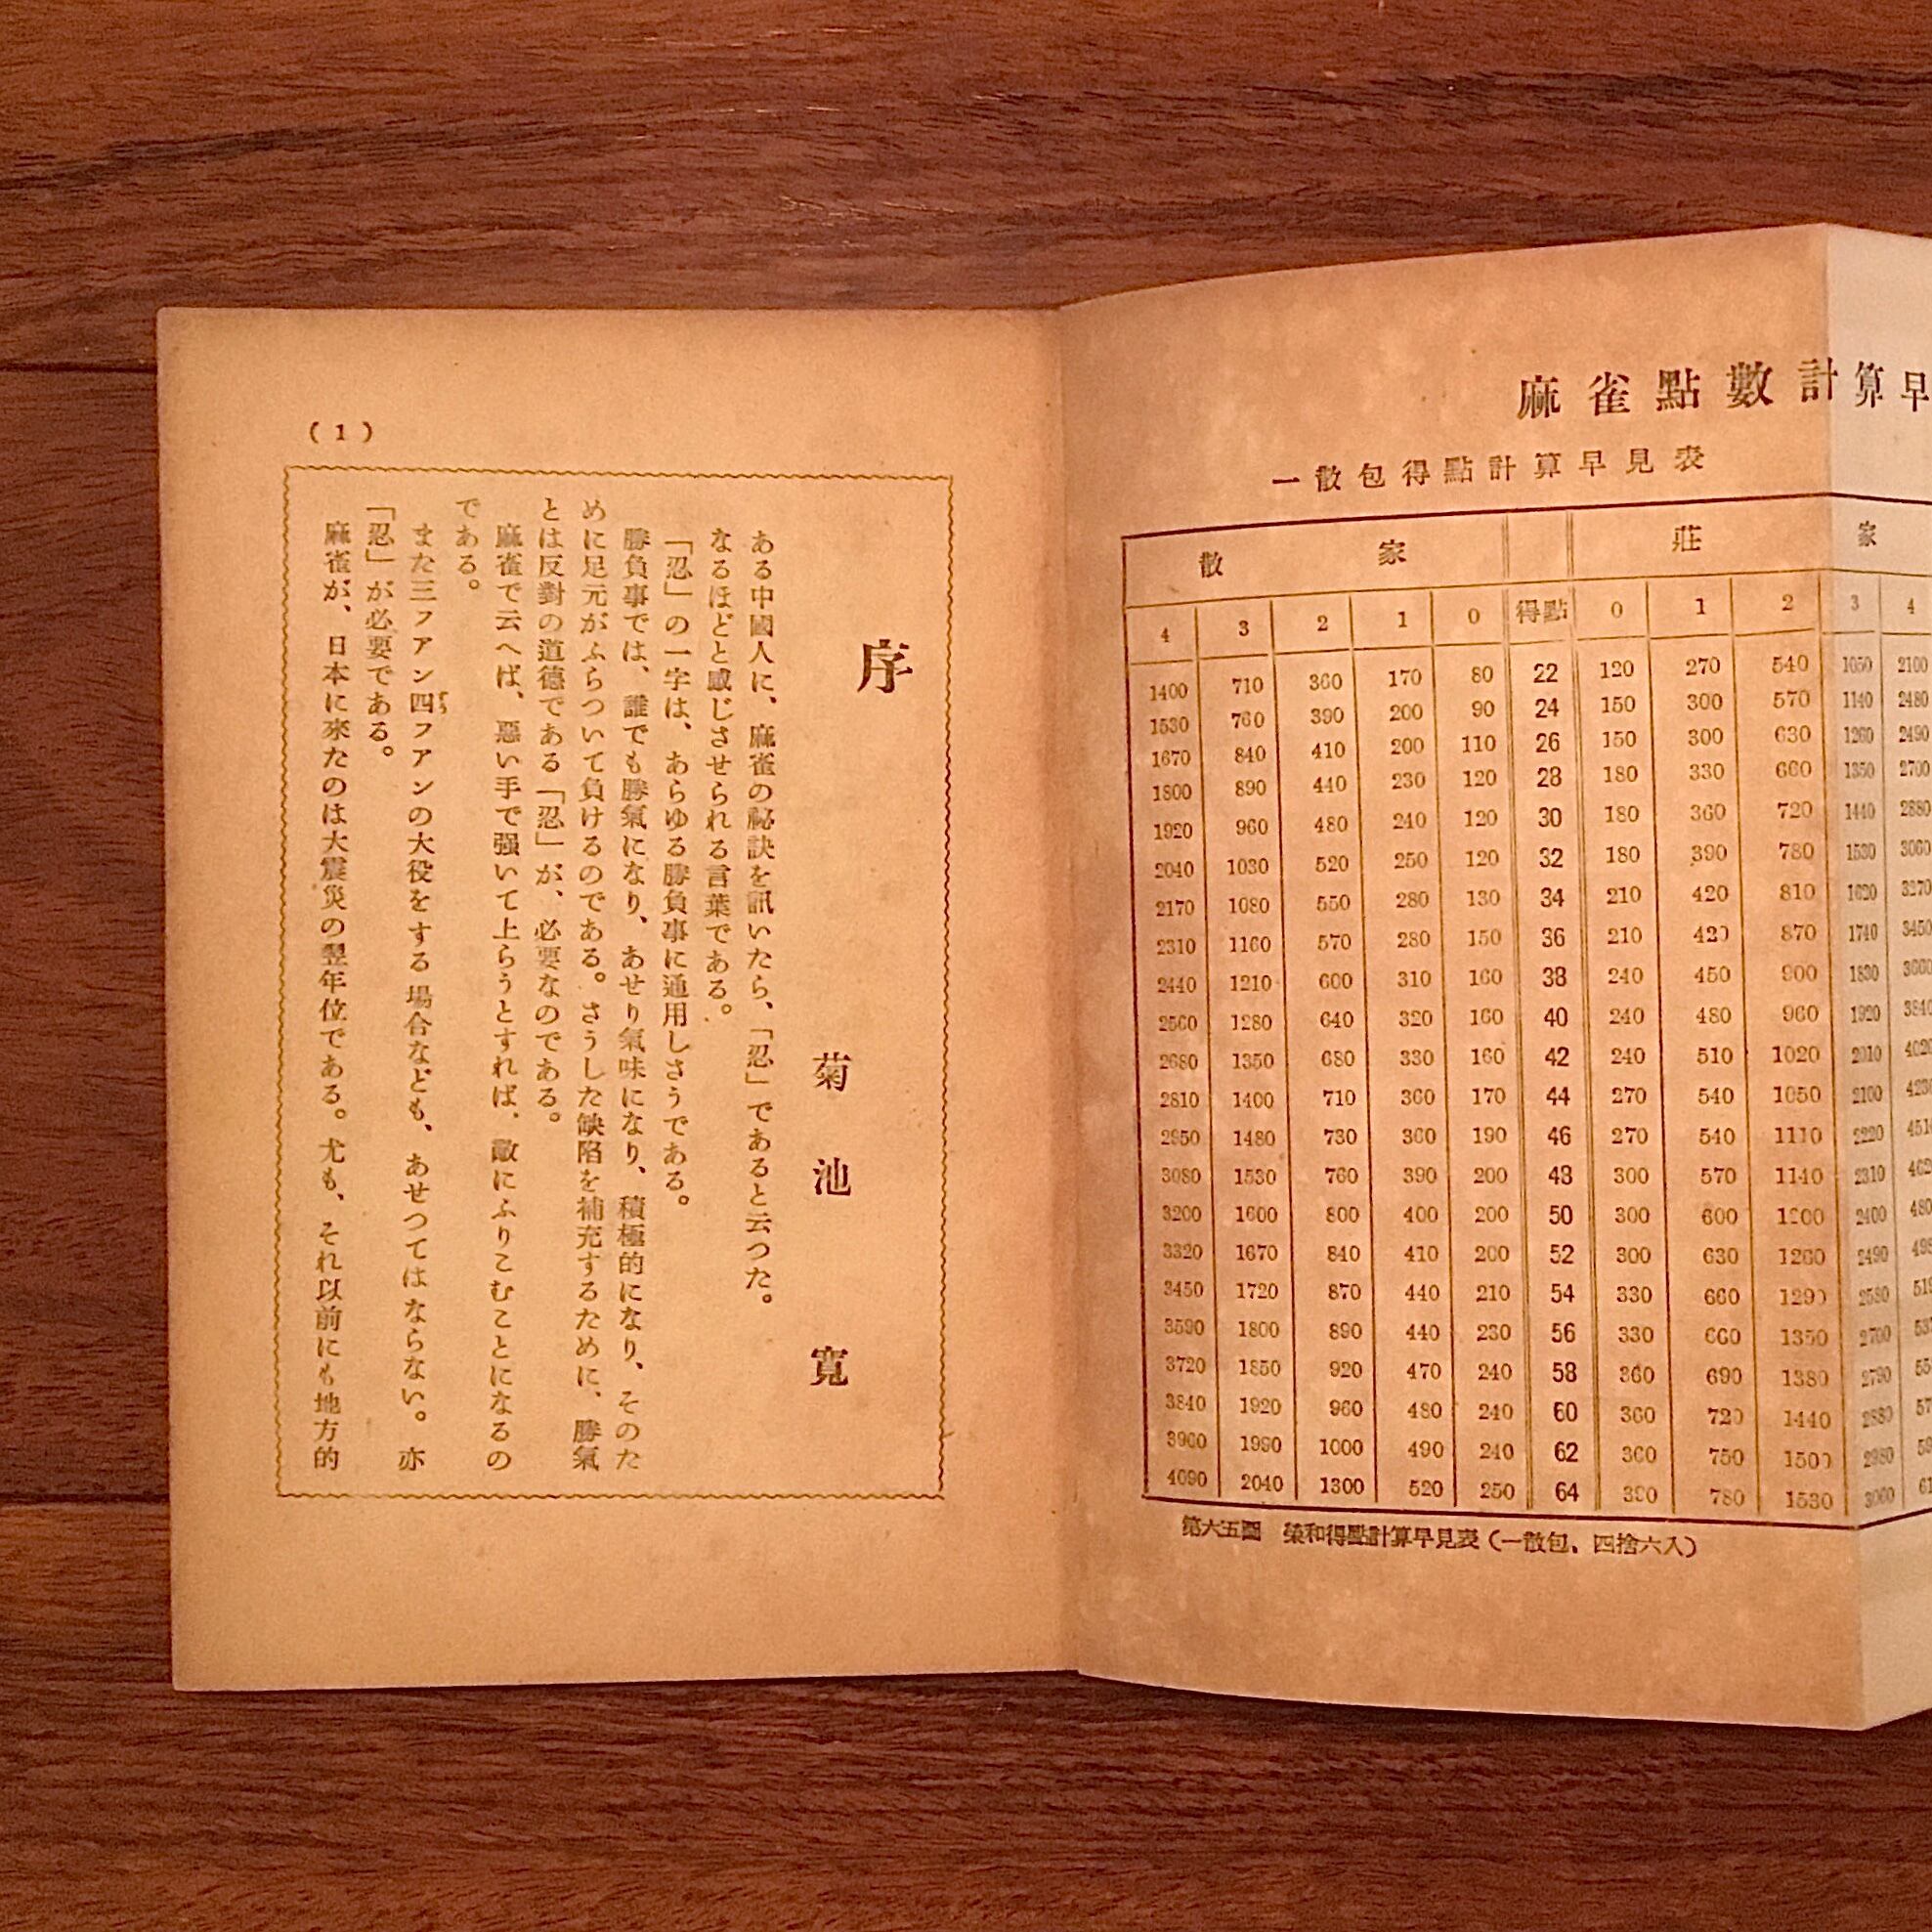 麻雀點數計算早
一散包得點計算早見表
散家 莊家
4 3 2 1 0 得點 0 1 2 3 4
1400 710 360 170 80 22 120 270 540 1050 2100
1530 760 390 200 90 24 150 300 570 1140 2480
1670 840 410 200 110 26 150 300 630 1260 2490
1800 890 440 230 120 28 180 330 660 1350 2700
1920 960 480 240 120 30 180 360 720 1440 2880
2040 1030 520 250 120 32 180 390 780 1530 3060
2170 1080 550 280 130 34 210 420 810 1620 3270
2310 1160 570 280 150 36 210 420 870 1740 3450
2440 1210 600 310 160 38 240 450 900 1830 3660
2560 1280 640 320 160 40 240 480 960 1920 3840
2680 1350 680 330 160 42 240 510 1020 2010
2810 1400 710 360 170 44 270 540 1050 2100
2950 1480 730 360 190 46 270 540 1110 2220
3080 1530 760 390 200 48 300 570 1140 2310
3200 1600 800 400 200 50 300 600 1200 2400
3320 1670 840 410 200 52 300 630 1260 2490
3450 1720 870 440 210 54 330 660 1290 2580
3590 1800 890 440 230 56 330 660 1350 2700
3720 1850 920 470 240 58 360 690 1380 2790
3840 1920 960 480 240 60 360 720 1440 2880
3960 1990 1000 490 240 62 360 750 1500 2980
4090 2040 1300 520 250 64 390 780 1530 3060
第六五圖 榮和得點計算早見表(一散包、四捨六入)
(1)
序
菊池寬
ある中國人に、麻雀の祕訣を訊いたら、「忍」であると云つた。
なるほどと感じさせられる言葉である。
「忍」の一字は、あらゆる勝負事に通用しさうである。
勝負事では、誰でも勝氣になり、あせり氣味になり、積極的になり、そのた
めに足元がふらついて負けるのである。さうした缺陷を補充するために、勝氣
とは反對の道德である「忍」が、必要なのである。
麻雀で云へば、惡い手で强いて上らうとすれば、敵にふりこむことになるの
である。
また三フアン四フアンの大役をする場合なども、あせつてはならない。亦
「忍」が必要である。
麻雀が、日本に來たのは大震災の翌年位である。尤も、それ以前にも地方的